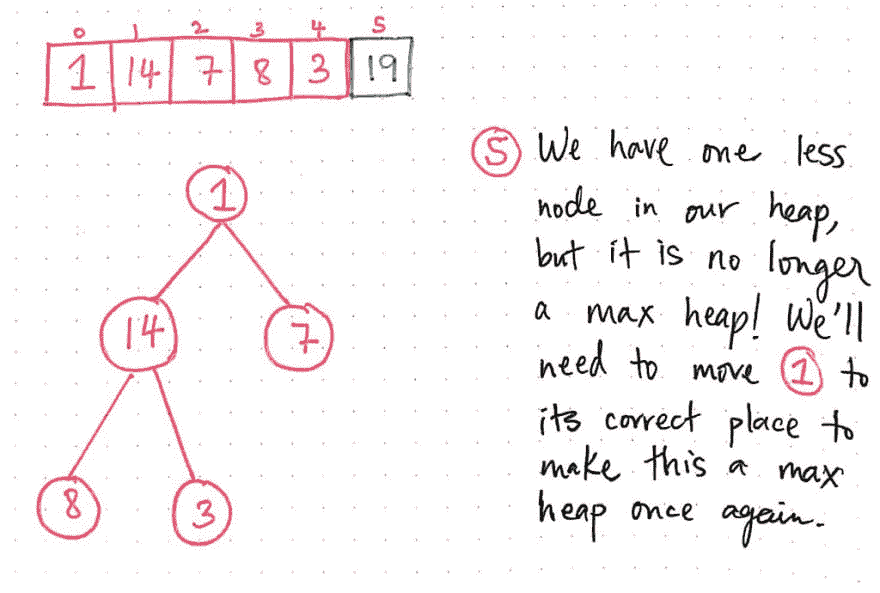 0 1 2 3 4 5
1 14 7 8 3 19
5 We have one less
node in our heap,
but it is no longer
a max heap! We'll
need to move 1 to
its correct place to
make this a max
heap once again.
1
14 7
8 3